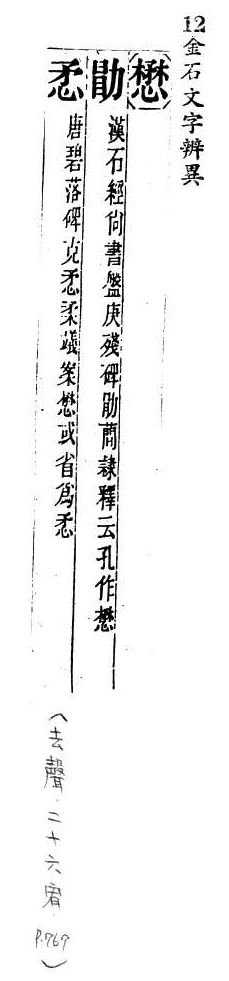 12金石文字辨異
懋
勖 漢石經尙書盤庚殘碑勖蕳隸釋云孔作懋
悉 唐碧落碑克悉柔議案懋或省爲悉
(去聲.二十六宥.P.767)